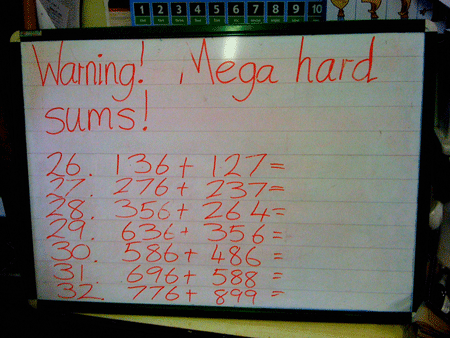 1 2 3 4 5 6 7 8 9 10
Warning! Mega hard
sums!
26. 136 + 127=
27. 276 + 237=
28. 356 + 264=
29. 636 + 356=
30. 586 + 486=
31. 696 + 588=
32. 776 + 899=